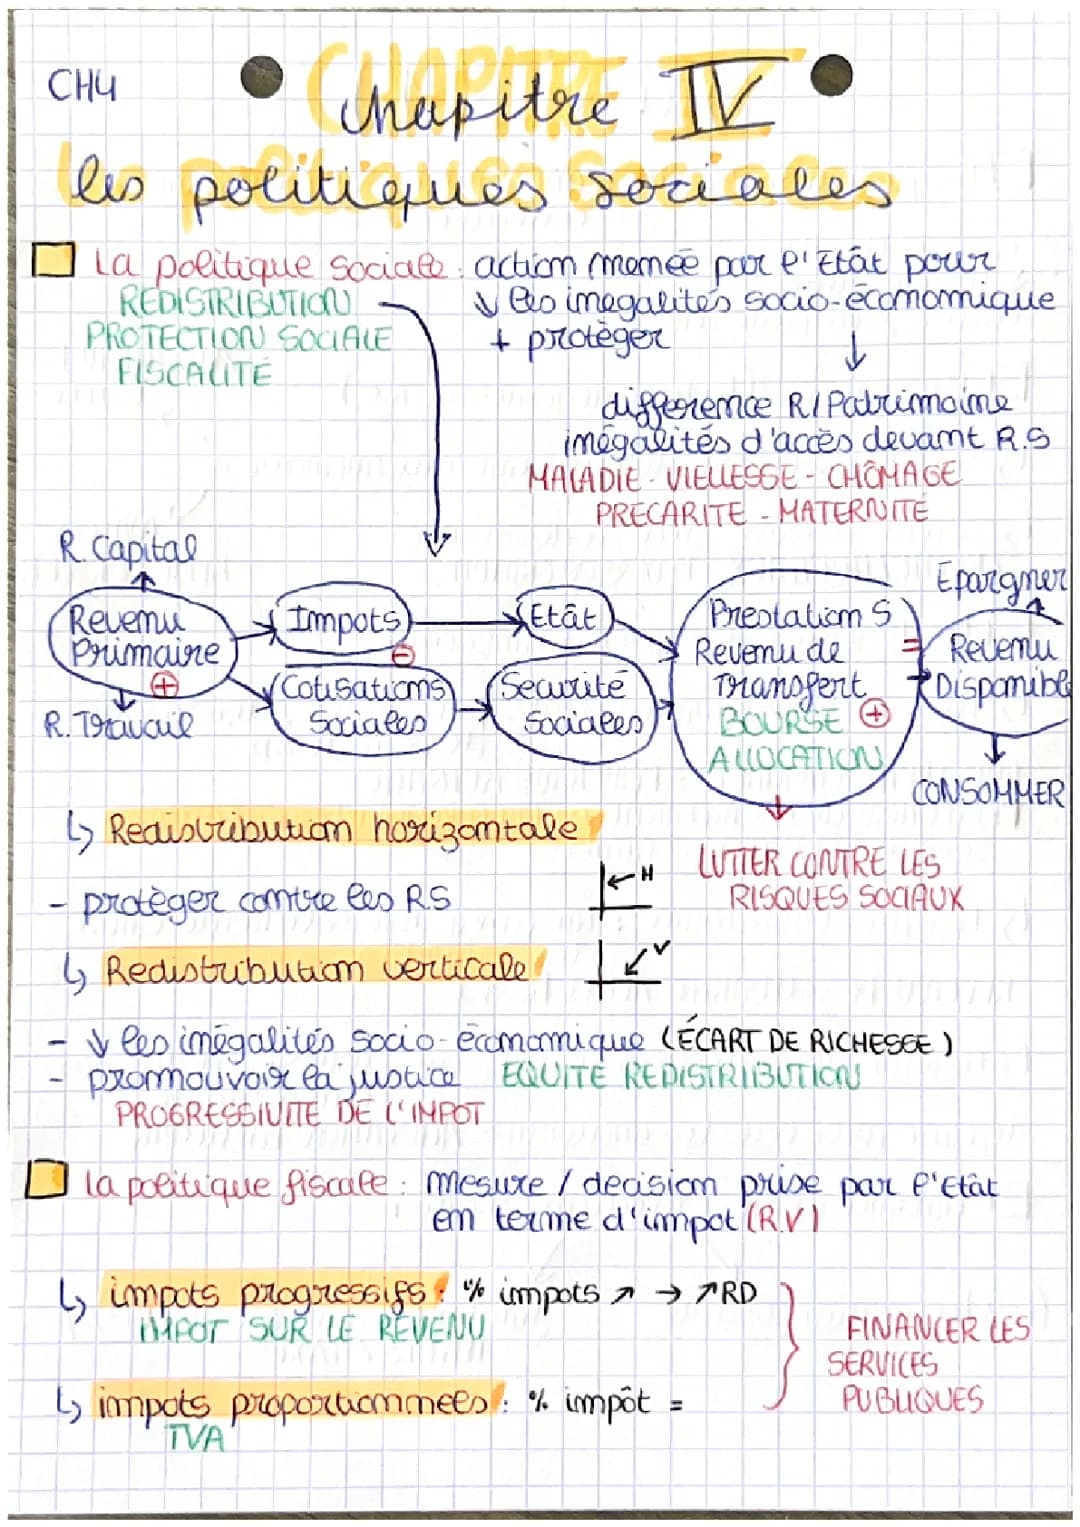 CH4
CHAPITRE IV
Chapitre IV
les politiques sociales
les politiques sociales
la politique sociale : action menée par l'Etât pour
REDISTRIBUTION
↓ les inegalités socio-économique
PROTECTION SOCIALE
+ protéger
FISCALITÉ
↓
difference R/Patrimoine
inégalités d'accès devant R.S
MALADIE - VIELLESSE - CHÔMAGE
PRECARITE - MATERNITÉ
R. Capital
Revenu
Primaire
+
R. Travail
Impots
-
Cotisations
Sociales
Etât
Securité
Sociales
Prestation S
Revenu de
Transfert
BOURSE +
ALLOCATION
=
Epargner
Revenu
Disponible
CONSOMMER
↳ Redistribution horizontale
LUTTER CONTRE LES
RISQUES SOCIAUX
← H
- protèger contre les RS
↳ Redistribution verticale
↙ V
- ↓ les inégalités socio-économique (ÉCART DE RICHESSE)
- promouvoir la justice EQUITÉ REDISTRIIBUTION
PROGRESSIVITE DE L'IMPOT
la politique fiscale : mesure / decision prise par l'Etât
en terme d'impot (R.V)
↳ impots progressifs : % impots ↗ → ↗RD
IMPOT SUR LE REVENU
FINANCER LES
SERVICES
PUBLIQUES
↳ impots proportionnees : % impôt =
TVA